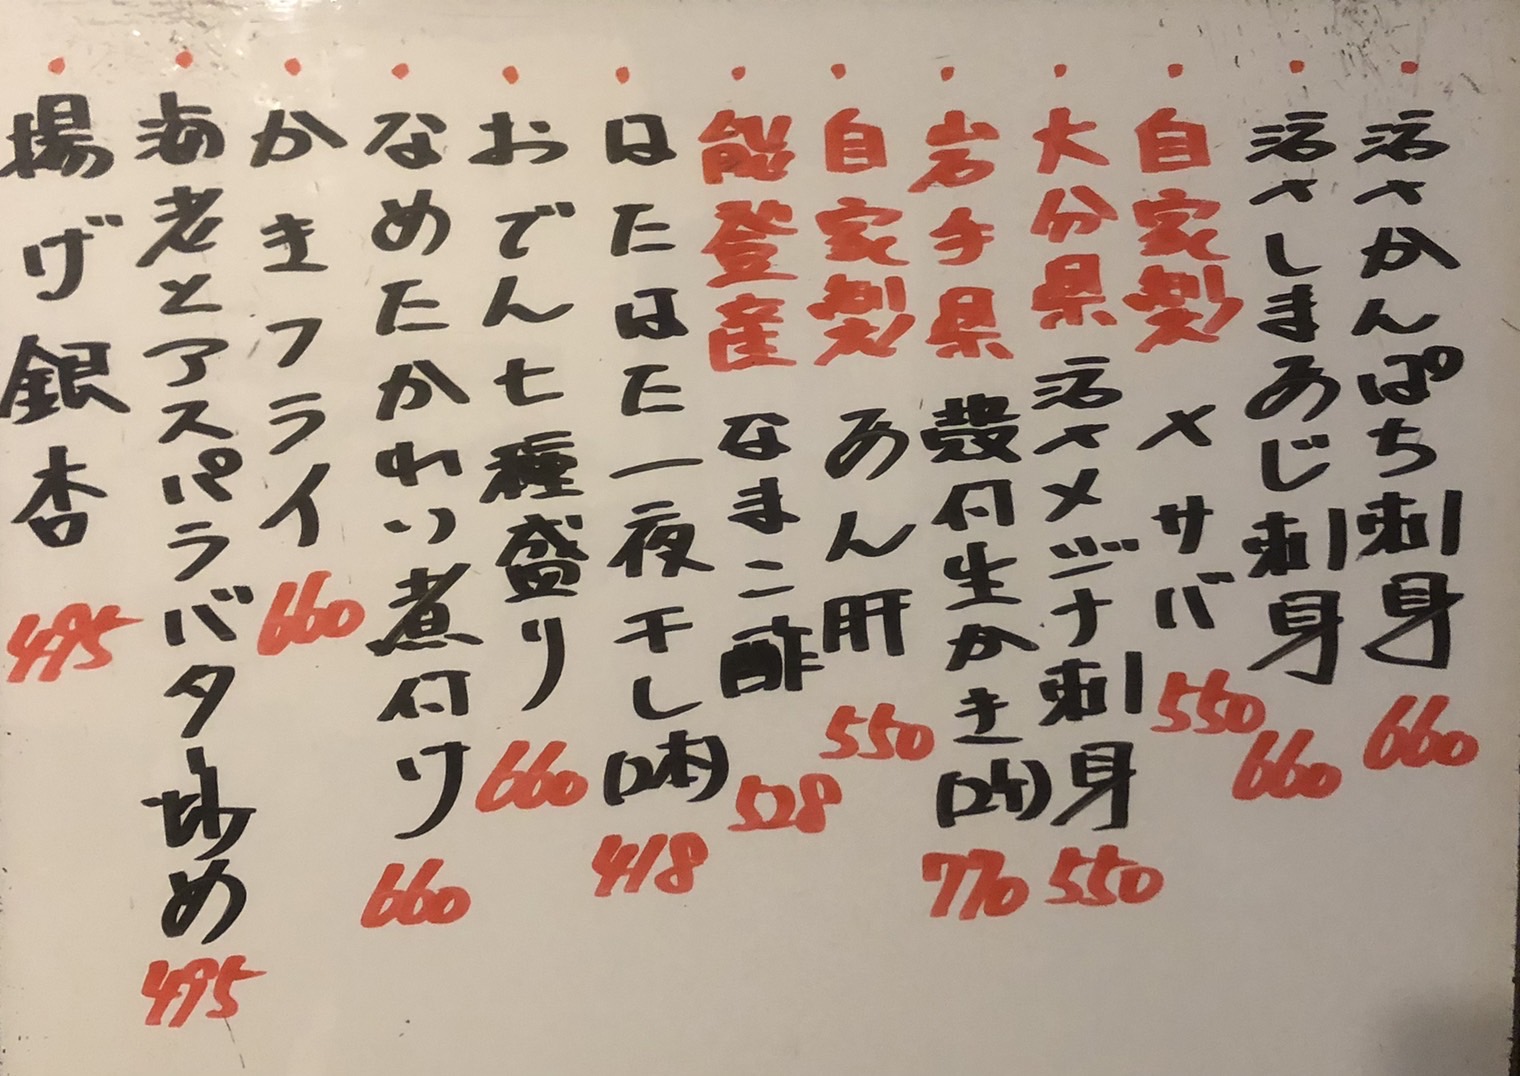 活〆かんぱち刺身 660
活〆しまあじ刺身 660
自家製 〆サバ 550
大分県 活〆メジナ刺身 550
岩手県 殻付生かき(2ケ) 770
自家製 あん肝 550
能登産 なまこ酢 528
はたはた一夜干し(2本) 418
おでん七種盛り 660
なめたかれい煮付け 660
かきフライ 660
海老とアスパラバター炒め 495
揚げ銀杏 495